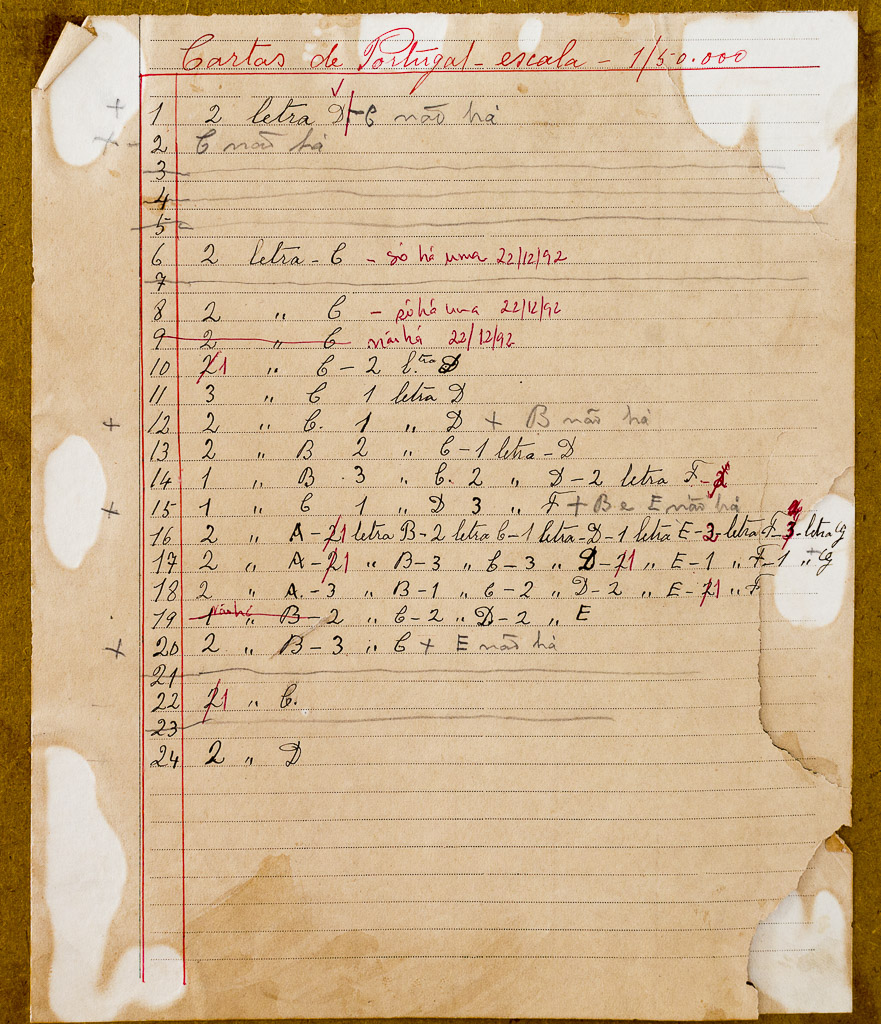 Cartas de Portugal - escala - 1/50.000
+ 1 2 letra D - C não há
+ - 2 C não há
3
4
5
6 2 letra - C - só há uma 22/12/92
7
8 2 " C - só há uma 22/12/92
9 2 " C não há 22/12/92
10 21 " C - 2 l.tra D
11 3 " C 1 letra D
+ 12 2 " C. 1 " D + B não há
13 2 " B 2 " C - 1 letra - D
14 1 " B 3 " C. 2 " D - 2 letra F -
+ 15 1 " C 1 " D 3 " F + B e E não há
16 2 " A - 21 letra B - 2 letra C - 1 letra - D - 1 letra E - 2 - letra F - 3 - letra G
17 2 " A - 21 " B - 3 " C - 3 " D - 21 " E - 1 " F - 1 " G
18 2 " A. - 3 " B - 1 " C - 2 " D - 2 " E - 21 " F
19 1 não há " B - 2 " C - 2 " D - 2 " E
+ 20 2 " B - 3 " C + E não há
21
22 21 " C.
23
24 2 " D